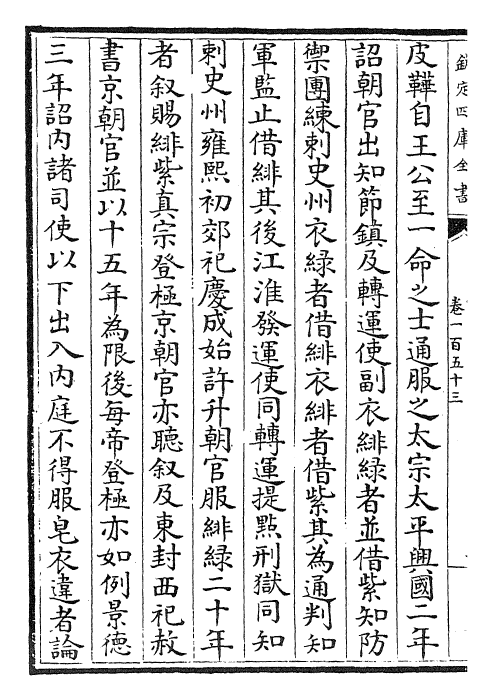 欽定四庫全書
卷一百五十三
皮鞾自王公至一命之士通服之太宗太平興國二年
詔朝官出知節鎮及轉運使副衣緋綠者並借紫知防
禦團練刺史州衣綠者借緋衣緋者借紫其為通判知
軍監止借緋其後江淮發運使同轉運提點刑獄同知
刺史州雍熙初郊祀慶成始許升朝官服緋綠二十年
者叙賜緋紫真宗登極京朝官亦聽叙及東封西祀赦
書京朝官並以十五年為限後每帝登極亦如例景德
三年詔内諸司使以下出入内庭不得服皂衣違者論